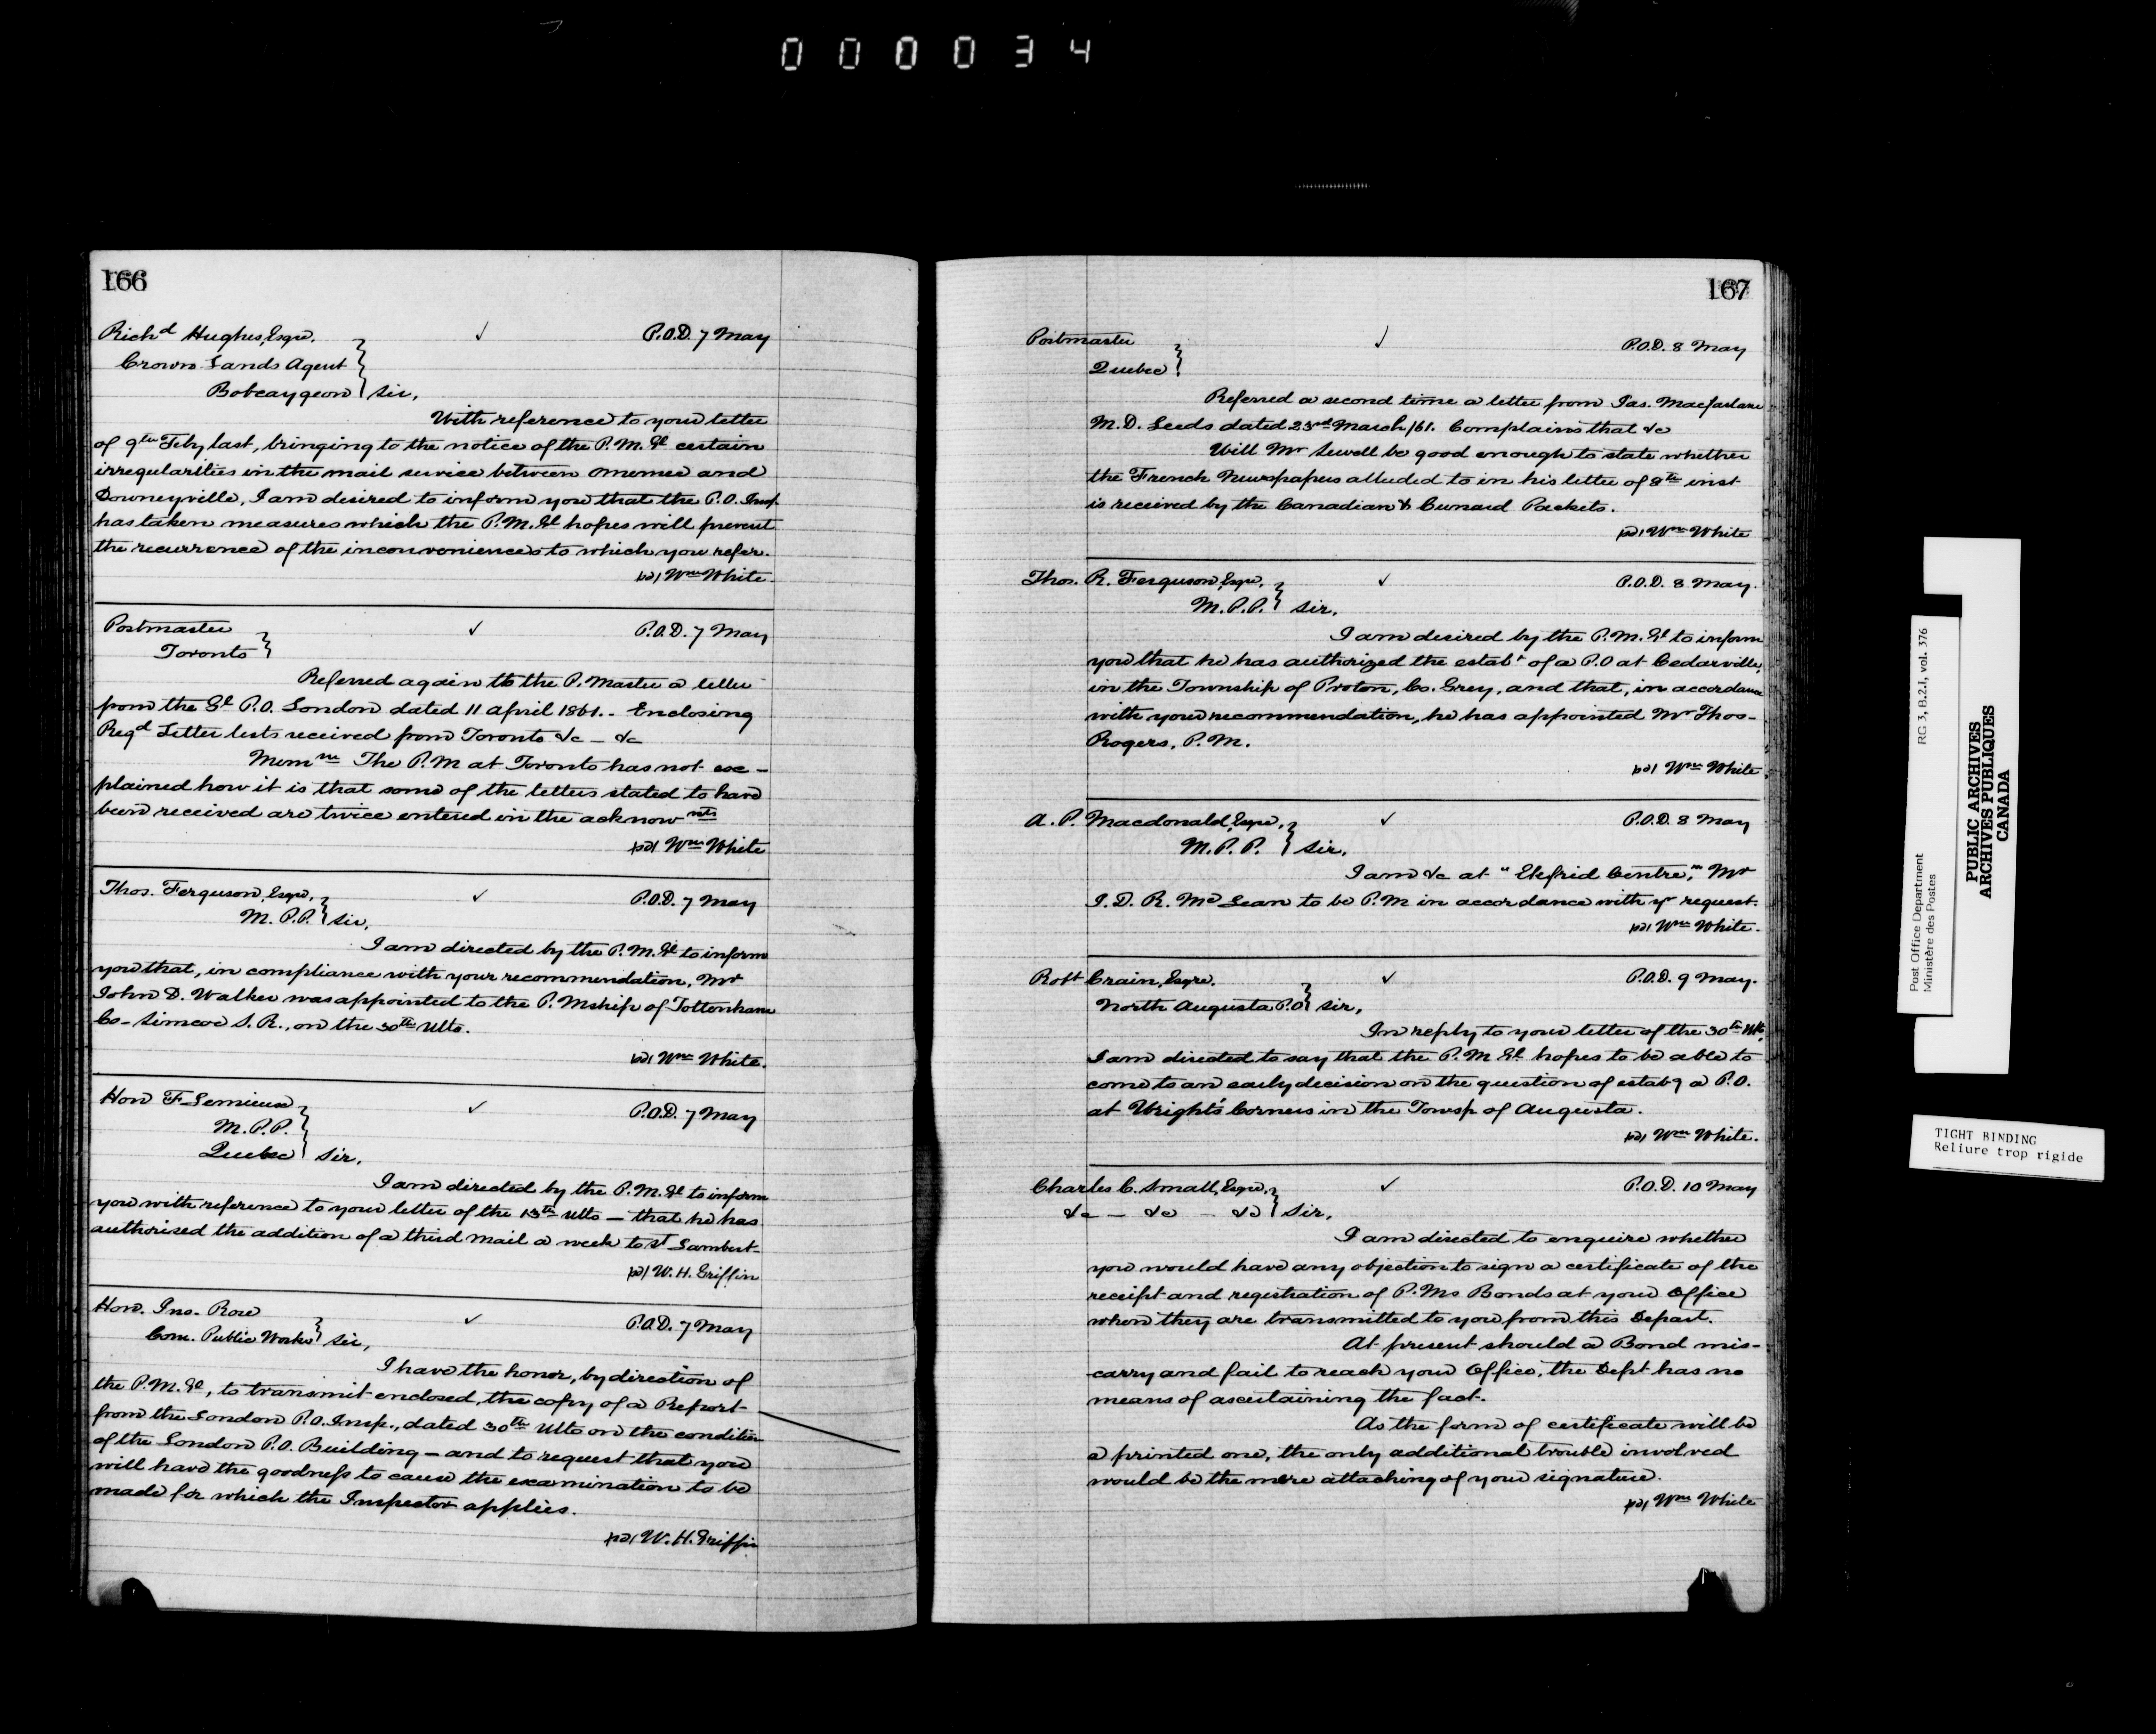 000034
166
Richd Hughes, Esqre. ✓ P.O.D. 7 May
Crown Lands Agent
Bobcaygeon } Sir,
With reference to your letter
of 9th Feby last, bringing to the notice of the P.M.Gl certain
irregularities in the mail service between Omemee and
Downeyville, I am desired to inform you that the P.O. Insp.
has taken measures which the P.M.Gl hopes will prevent
the recurrence of the inconveniences to which you refer.
Wm White.
Postmaster ✓ P.O.D. 7 May
Toronto }
Referred again to the P. Master a letter
from the Gl P.O. London dated 11 April 1861. - Enclosing
Regd Letter lists received from Toronto &c - &c
Memm The P.M at Toronto has not ex-
plained how it is that some of the letters stated to have
been received are twice entered in the acknow nts
Wm White
Thos. Ferguson, Esqre, ✓ P.O.D. 7 May
M.P.P. } Sir,
I am directed by the P.M.Gl to inform
you that, in compliance with your recommendation, Mr
John D. Walker was appointed to the P. Mship of Tottenham
Co- Simcoe S.R., on the 30th Ulto.
Wm White.
Hon F Lemieux ✓ P.O.D. 7 May
M.P.P.
Quebec } Sir,
I am directed by the P.M.Gl to inform
you with reference to your letter of the 13th Ulto - that he has
authorised the addition of a third mail a week to St Lambert-
W.H. Griffin
Hon. Jno. Rose ✓ P.O.D. 7 May
Com. Public Works } Sir,
I have the honor, by direction of
the P.M.Gl, to transmit enclosed, the copy of a Report
from the London P.O. Insp., dated 30th Ulto on the condition
of the London P.O. Building - and to request that you
will have the goodness to cause the examination to be
made for which the Inspector applies.
W.H. Griffin
167
Postmaster ✓ P.O.D. 8 May
Quebec }
Referred a second time a letter from Jas. Macfarlane
M.D. Leeds dated 23rd March /61. Complains that &c
Will Mr Sewell be good enough to state whether
the French Newspapers alluded to in his letter of 8th inst
is received by the Canadian & Cunard Packets.
Wm White
Thos. R. Ferguson, Esqre, ✓ P.O.D. 8 May.
M.P.P. } Sir,
I am desired by the P.M.Gl to inform
you that he has authorized the estabt of a P.O at Cedarville,
in the Township of Proton, Co. Grey, and that, in accordance
with your recommendation, he has appointed Mr Thos-
Rogers, P.M.
Wm White
A. P. Macdonald, Esqre, ✓ P.O.D. 8 May
M.P.P. } Sir,
I am &c at "Ekfrid Centre," Mr
J. D. R. McLean to be P.M in accordance with yr request.
Wm White.
Robt Crain, Esqre. ✓ P.O.D. 9 May.
North Augusta P.O } Sir,
In reply to your letter of the 30th Ulto,
I am directed to say that the P.M Gl hopes to be able to
come to an early decision on the question of estabg a P.O.
at Wright's Corners in the Towsp of Augusta.
Wm White.
Charles C. Small, Esqre, ✓ P.O.D. 10 May
&c - &c - &c } Sir,
I am directed to enquire whether
you would have any objection to sign a certificate of the
receipt and registration of P.Ms Bonds at your Office
when they are transmitted to you from this Depart.
At present should a Bond mis-
carry and fail to reach your Office, the Dept has no
means of ascertaining the fact.
As the form of certificate will be
a printed one, the only additional trouble involved
would be the mere attaching of your signature.
Wm White
Post Office Department RG 3, B.2.1, vol. 376
Ministère des Postes
PUBLIC ARCHIVES
ARCHIVES PUBLIQUES
CANADA
TIGHT BINDING
Reliure trop rigide